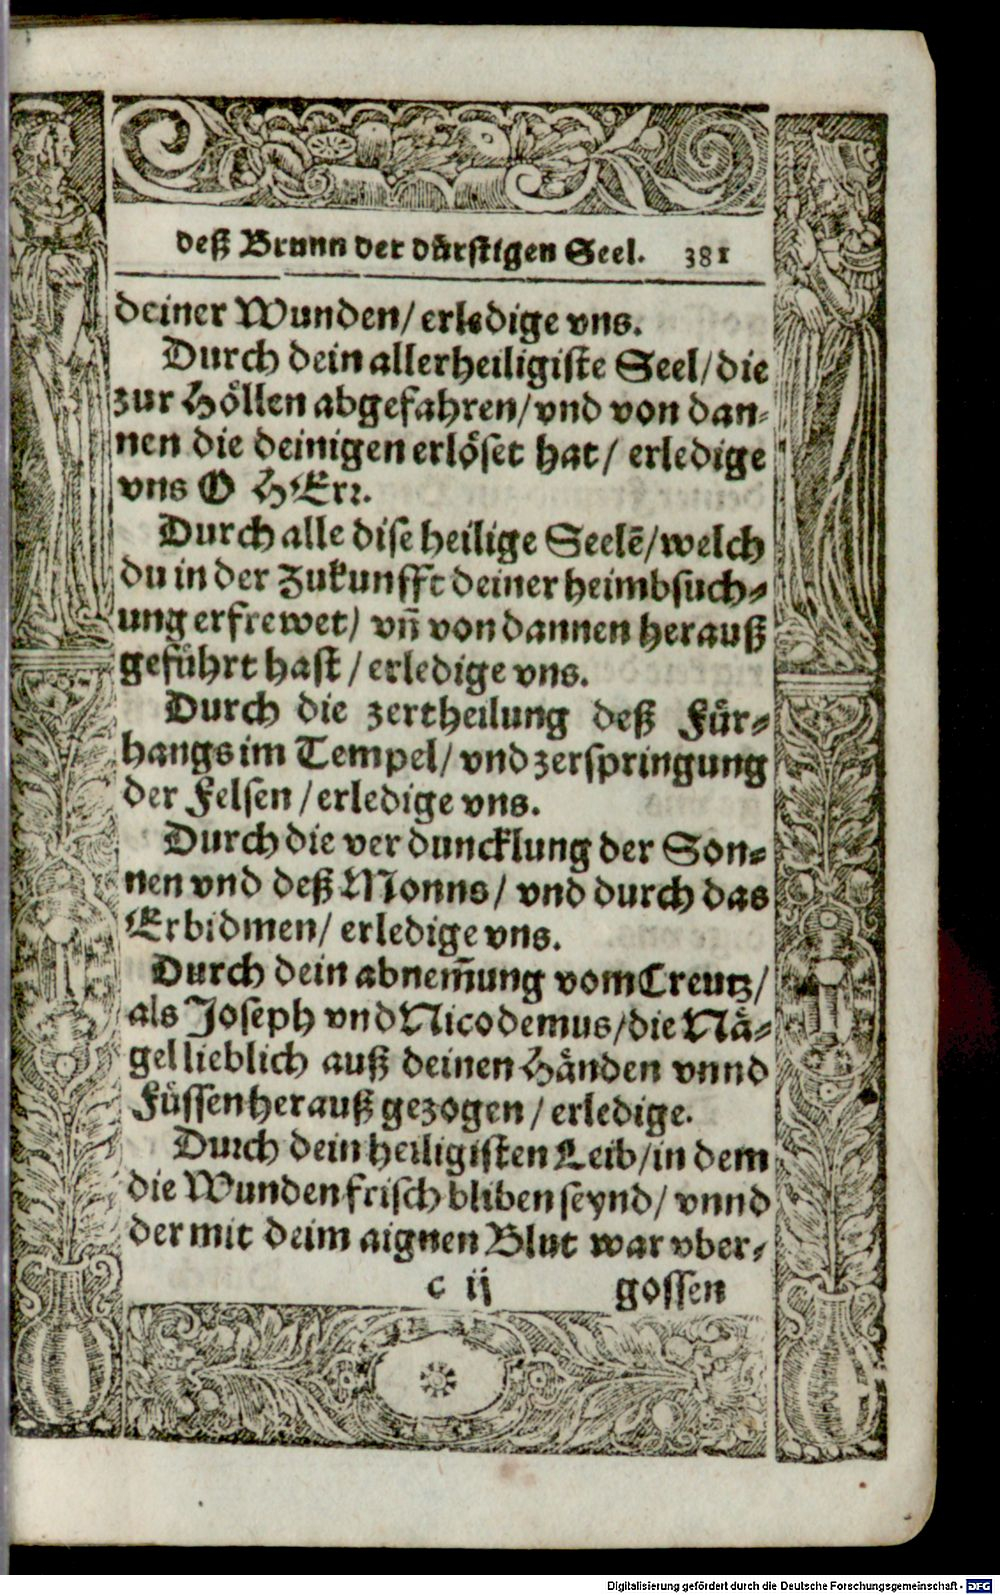 deß Brunn der dürstigen Seel. 381
deiner Wunden/ erledige vns.
Durch dein allerheiligiste Seel/die
zur Höllen abgefahren/vnd von dan-
nen die deinigen erlöset hat/ erledige
vns O HErr.
Durch alle dise heilige Seelẽ/welch
du in der Zukunfft deiner heimbsuch-
ung erfrewet/ vñ von dannen herauß
geführt hast / erledige vns.
Durch die zertheilung deß Für-
hangs im Tempel/ vnd zerspringung
der Felsen / erledige vns.
Durch die verduncklung der Son-
nen vnd deß Monns/ vnd durch das
Erbidmen/ erledige vns.
Durch dein abnem̃ung vom Creutz/
als Joseph vnd Nicodemus/die Nä-
gel lieblich auß deinen Händen vnnd
Füssen herauß gezogen / erledige.
Durch dein heiligisten Leib/in dem
die Wunden frisch bliben seynd/ vnnd
der mit deim aignen Blut war vber-
c ij gossen
Digitalisierung gefördert durch die Deutsche Forschungsgemeinschaft - DFG